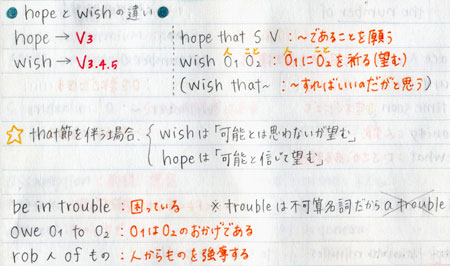 ● hopeとwishの違い ●
hope → V3
wish → V3.4.5
hope that S V : 〜であることを願う
人 こと 人 こと
wish O1 O2 : O1にO2を祈る(望む)
(wish that〜 : 〜すればいいのだがと思う)
☆ that節を伴う場合、{ wishは「可能とは思わないが望む」
hopeは「可能と信じて望む」
be in trouble : 困っている ※troubleは不可算名詞だからa trouble
owe O1 to O2 : O1はO2のおかげである
rob 人 of もの : 人からものを強奪する